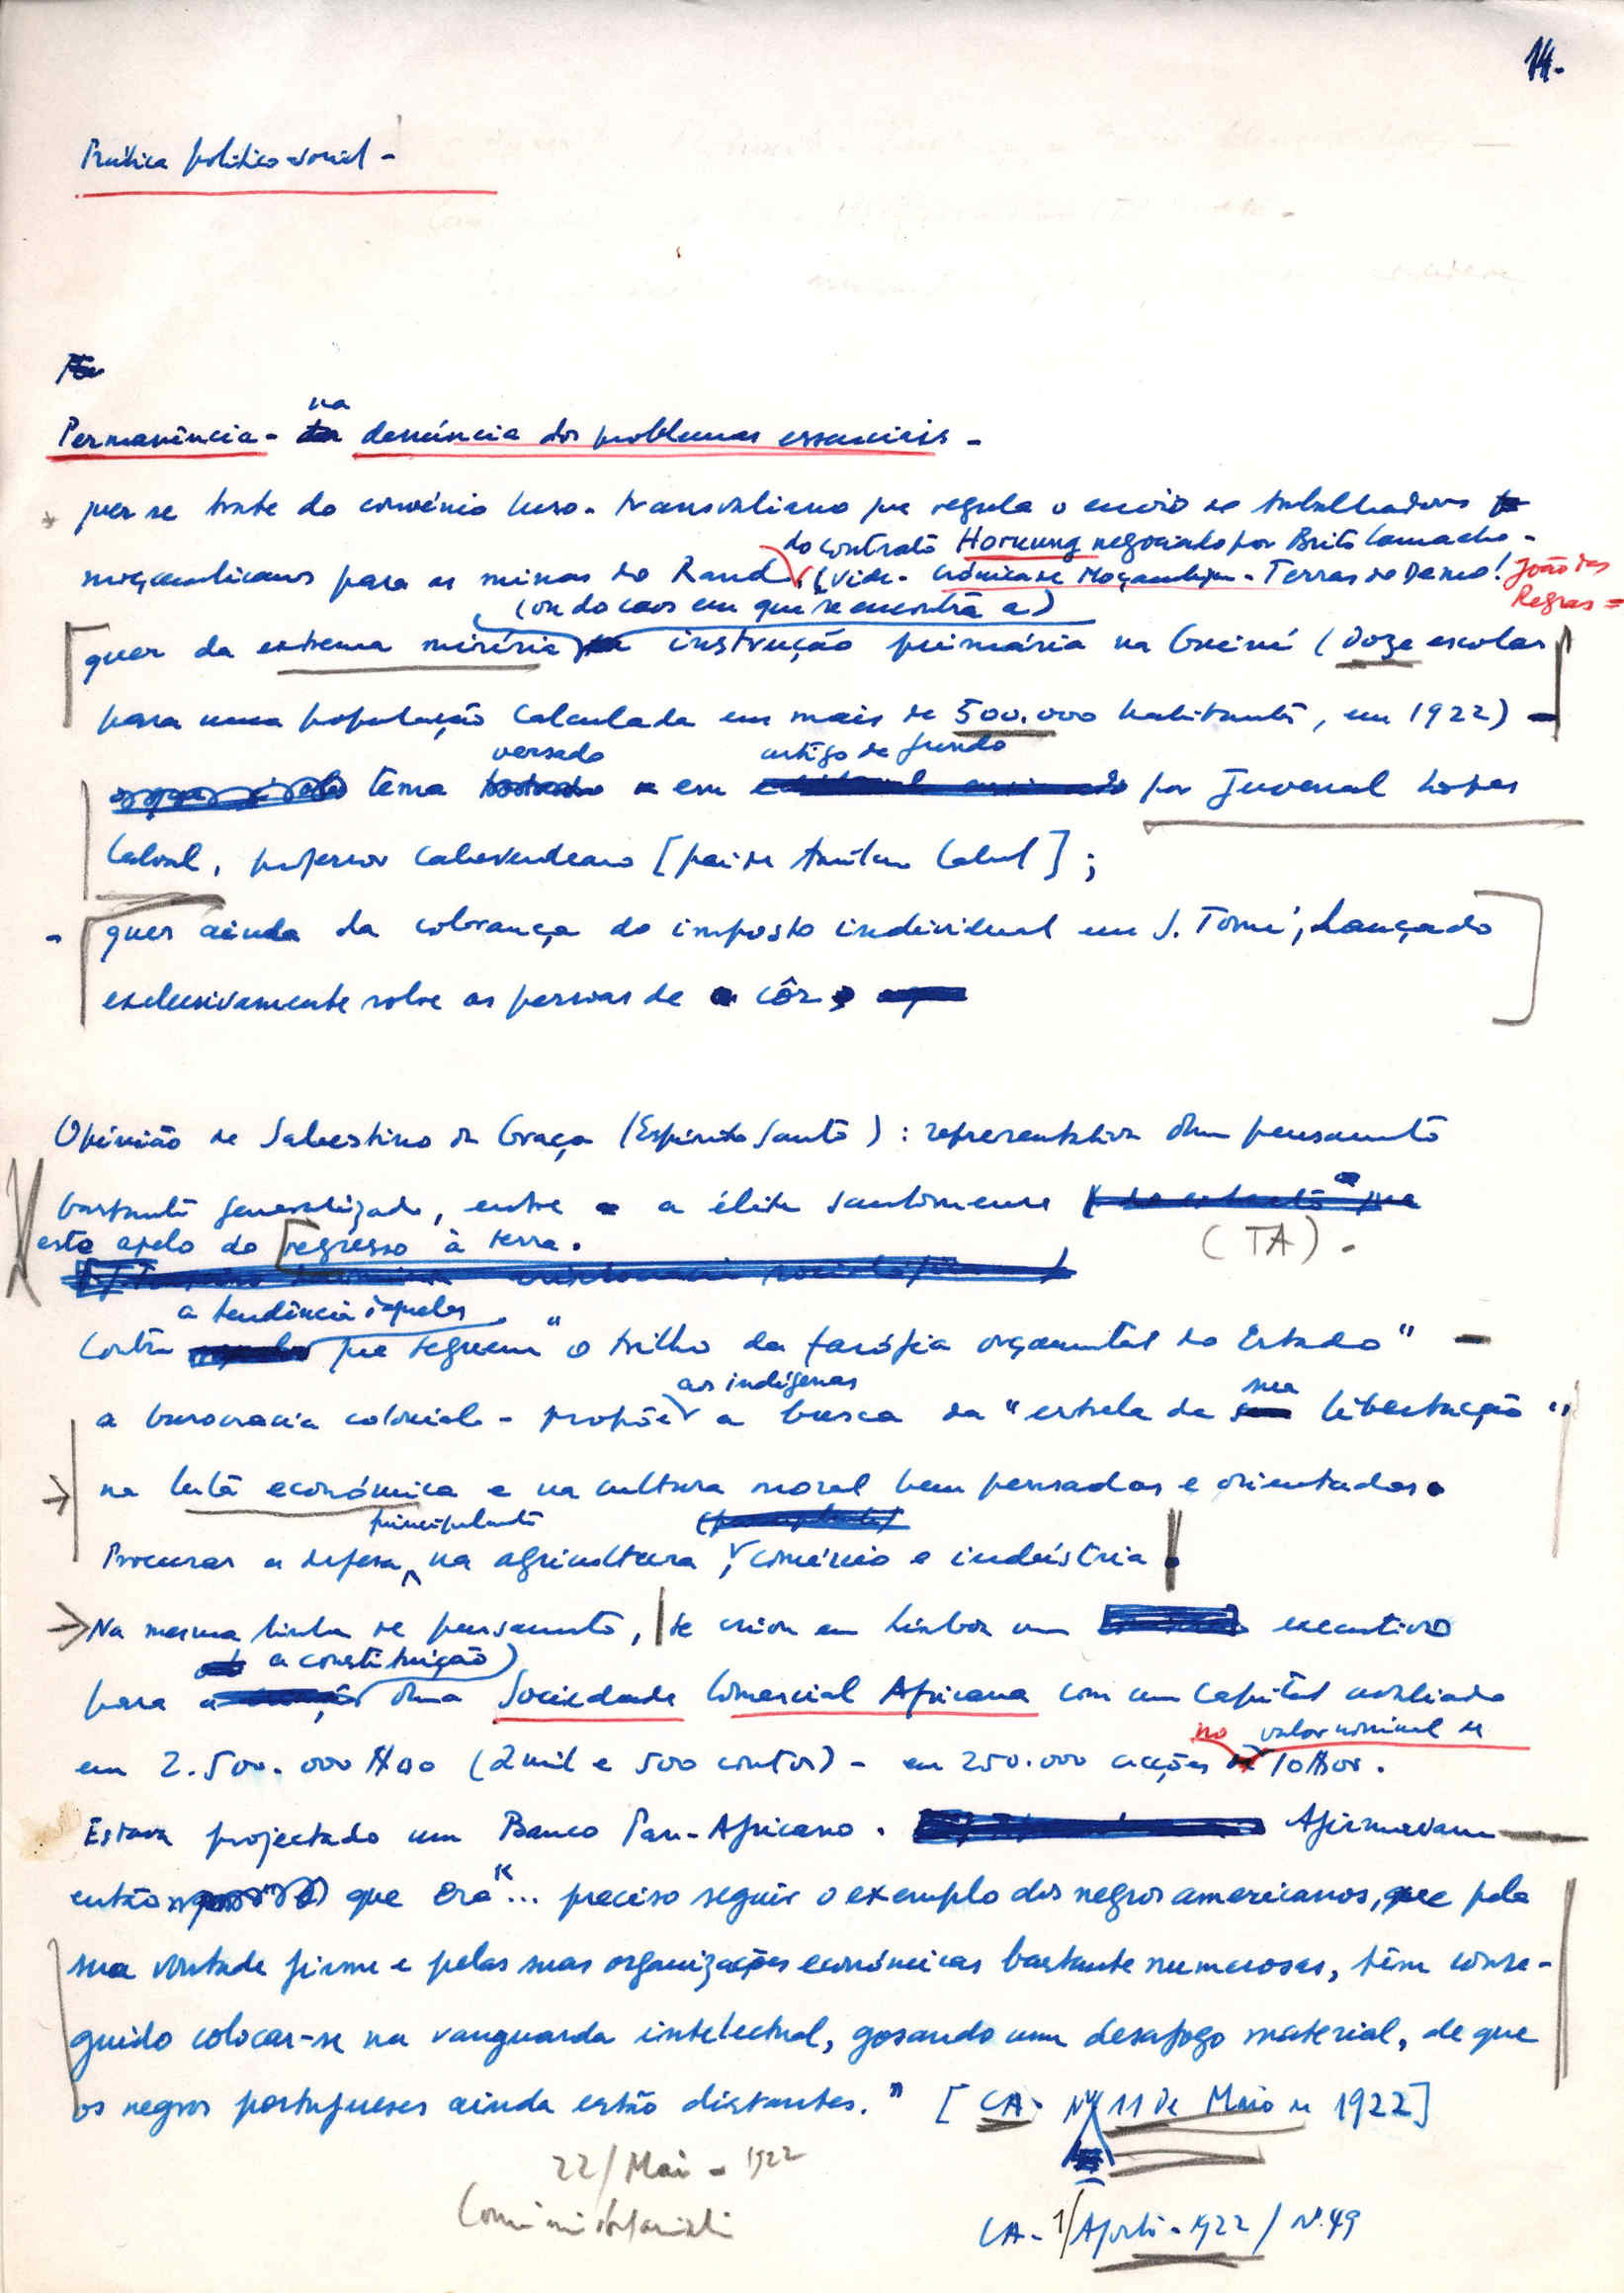 14.
Prática político-social -
Permanência - na denúncia dos problemas essenciais -
quer se trate do convénio luso-transvaliano que regula o envio de trabalhadores
do contrato Hornung negociado por Brito Camacho -
moçambicanos para as minas do Rand (vide - Crónica de Moçambique - Terras do Demo! João das
Regras =
(ou do caos em que se encontra a)
quer da extrema miséria instrução primária na Guiné (doze escolas
para uma população calculada em mais de 500.000 habitantes, em 1922) -
versado artigo de fundo
tema em por Juvenal Lopes
Cabral, professor caboverdeano [pai de Amílcar Cabral];
- quer ainda da cobrança do imposto individual em S. Tomé, lançado
exclusivamente sobre as pessoas de côr
Opinião de Salustino da Graça (Espírito Santo) : representativa dum pensamento
bastante generalizado, entre a élite santomense
este apelo do regresso à terra. (TA) -
a tendência daqueles
Contra que seguem "o trilho da farófia orçamental do Estado" -
aos indígenas sua
a burocracia colonial - propõe a busca da "estrela da libertação"
na luta económica e na cultura moral bem pensadas e orientadas.
principalmente
Procurar a defesa na agricultura, comércio e indústria.
Na mesma linha de pensamento, se criou em Lisboa um executivo
a constituição
para duma Sociedade Comercial Africana com um capital avaliado
no valor nominal de
em 2.500.000$00 (2 mil e 500 contos) - em 250.000 acções 10$00.
Estava projectado um Banco Pan-Africano. Afirmavam
então que era "... preciso seguir o exemplo dos negros americanos, que pela
sua vontade firme e pelas suas organizações económicas bastante numerosas, têm conse-
guido colocar-se na vanguarda intelectual, gosando um desafogo material, de que
os negros portugueses ainda estão distantes." [CA - 11 de Maio de 1922]
22/Mai - 1922
CA - 1/Agosto - 1922 / Nº. 49